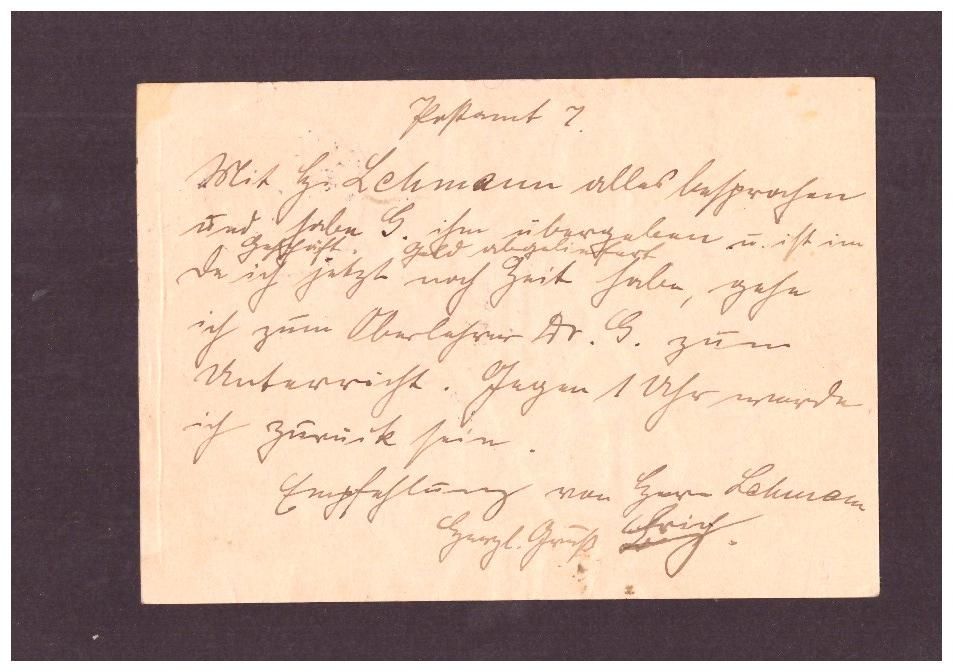 Postamt 7.
Mit H. Lehmann alles besprochen
und habe G. ihm übergeben u. ist im
Geschäft. Geld abgeliefert
Da ich jetzt noch Zeit habe, gehe
ich zum Oberlehrer Dr. G. zum
Unterricht. Gegen 1 Uhr werde
ich zurück sein.
Empfehlung von Herrn Lehmann
Herzl. Gruß Erich.